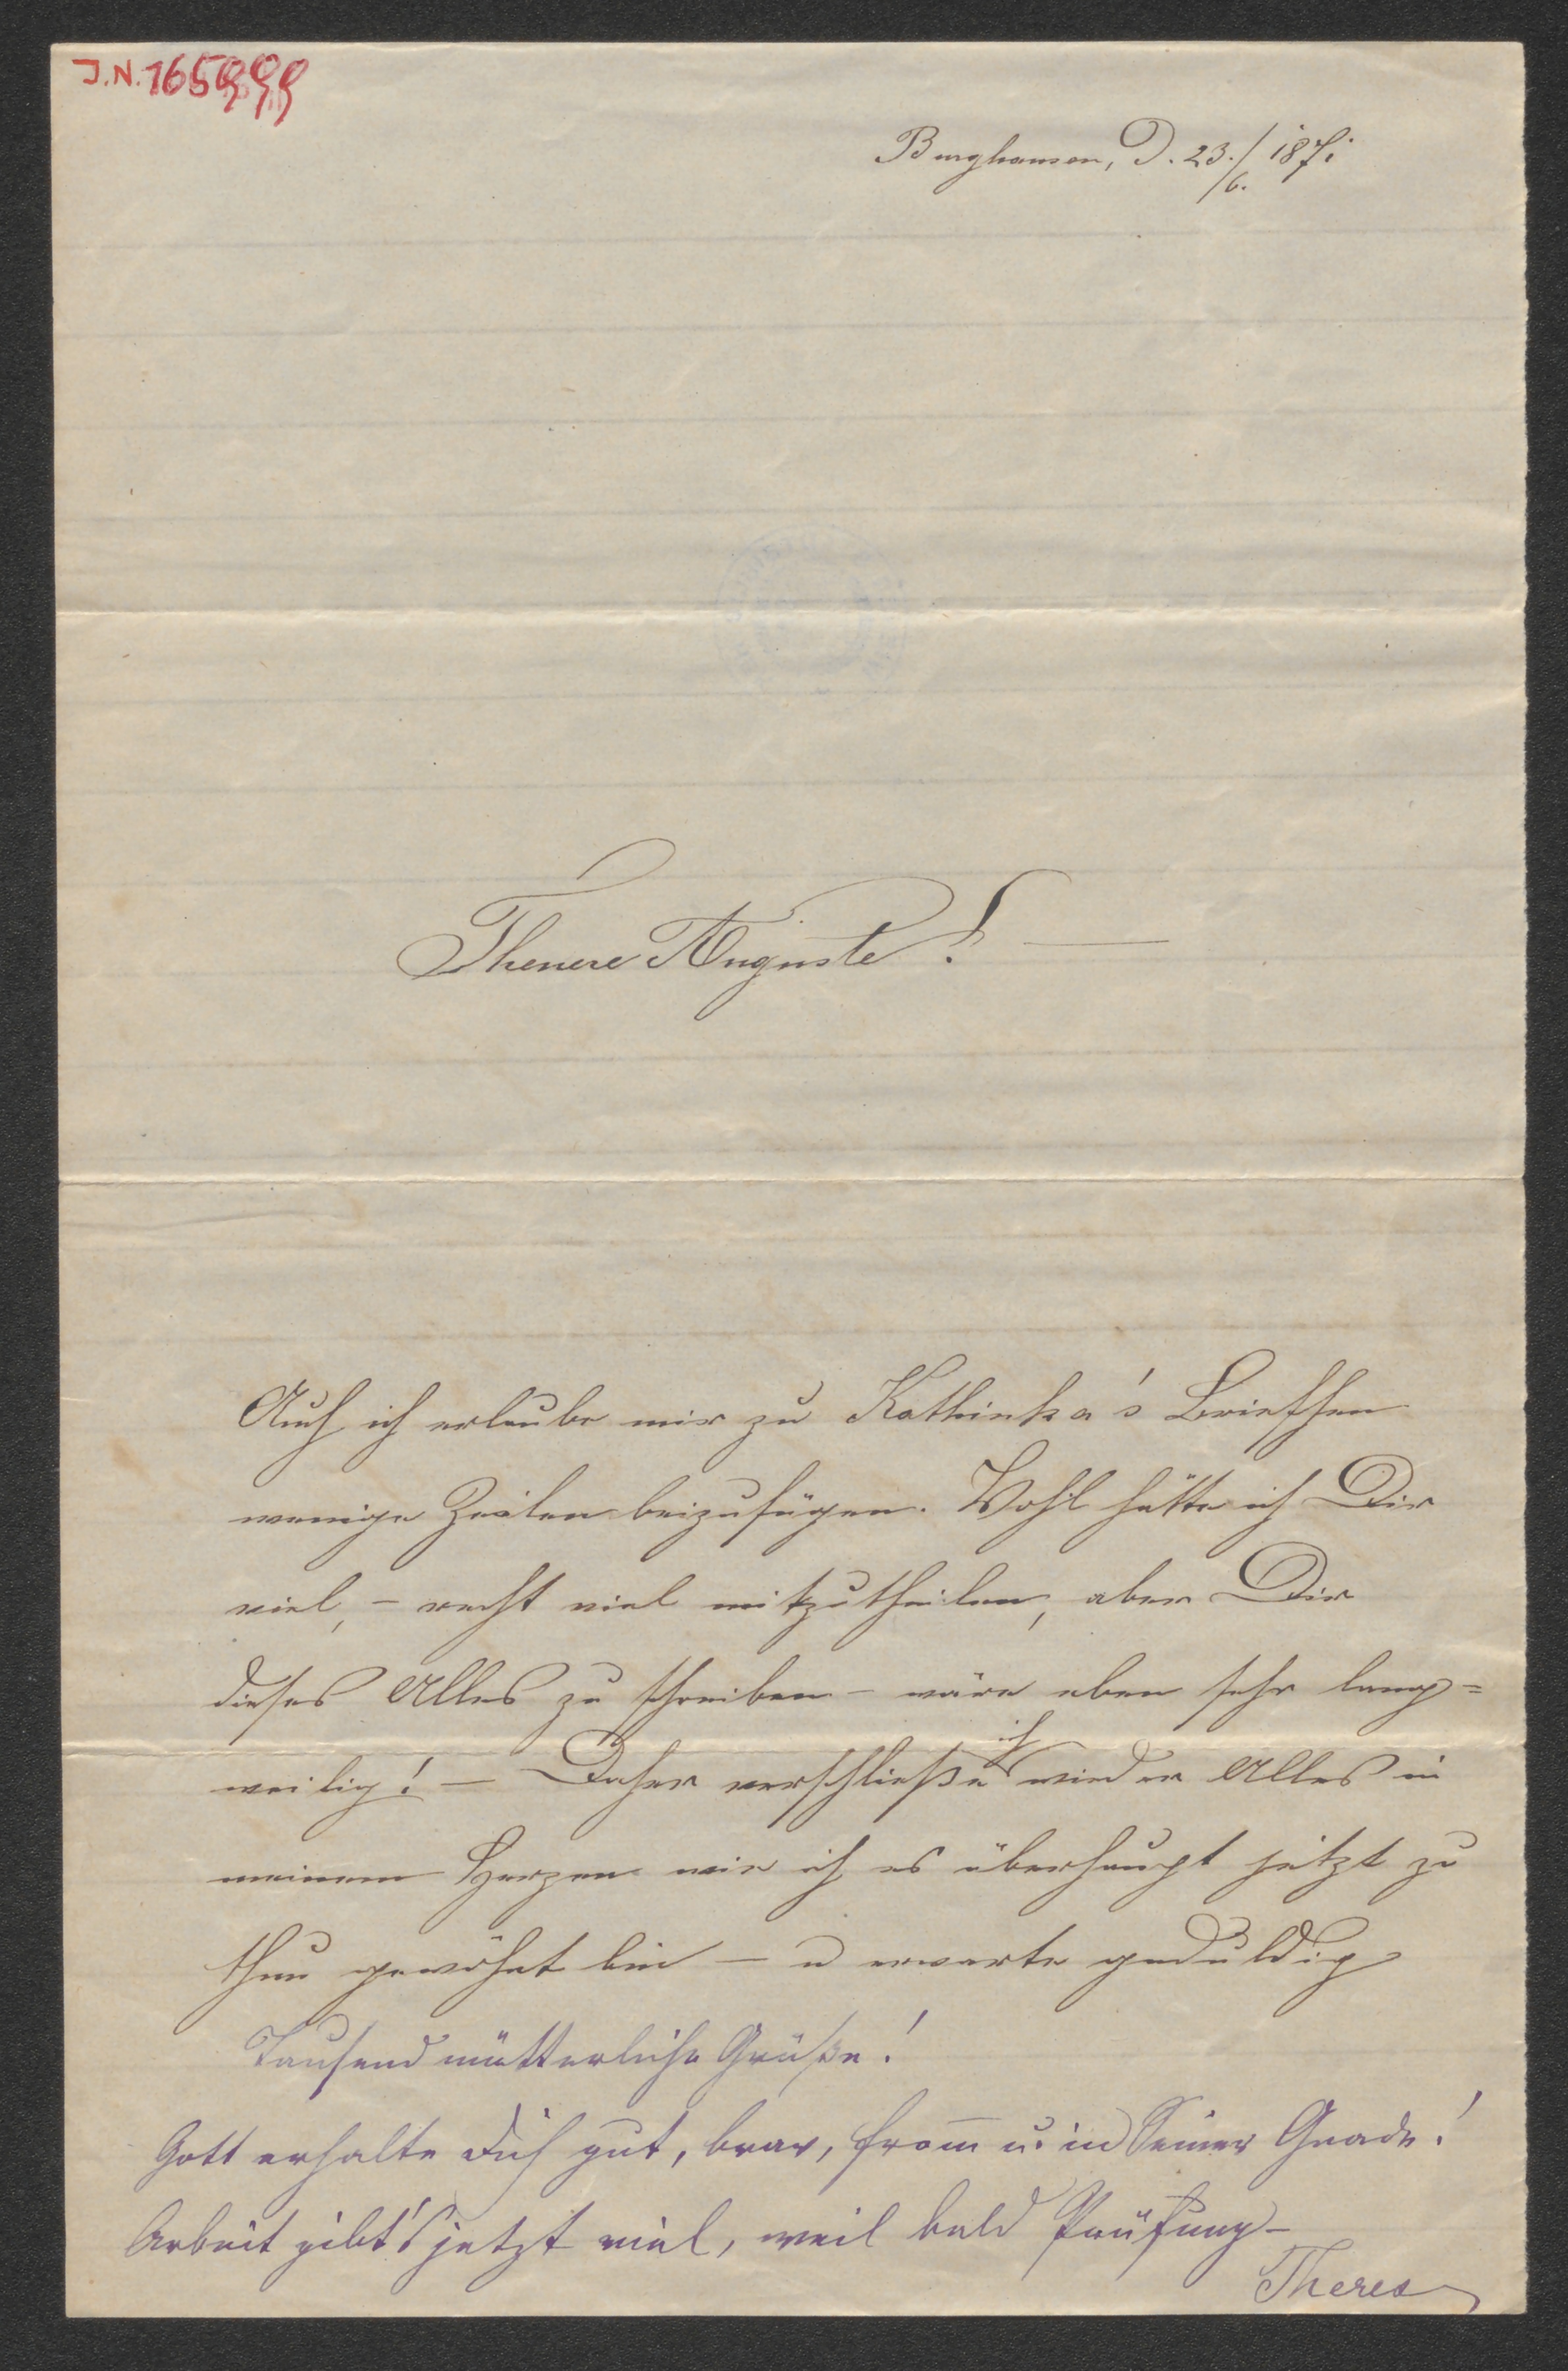 J.N. 165999
Burghausen, D. 23./6. 1871
Theuere Auguste! —
Auch ich erlaube mir zu Kathinka's Briefchen
wenige Zeilen beizufügen. Wohl hätte ich Dir
viel, – recht viel mitzutheilen, aber Dir
dieses Alles zu schreiben – wäre eben sehr lang=
weilig! – Daher verschließe ich wieder Alles in
meinem Herzen wie ich es überhaupt jetzt zu
thun gewöhnt bin – u erwarte geduldig
Tausend mütterliche Grüße!
Gott erhalte Dich gut, brav, from̄ u. in Seiner Gnade!
Arbeit gibt's jetzt viel, weil bald Prüfung –
Theres